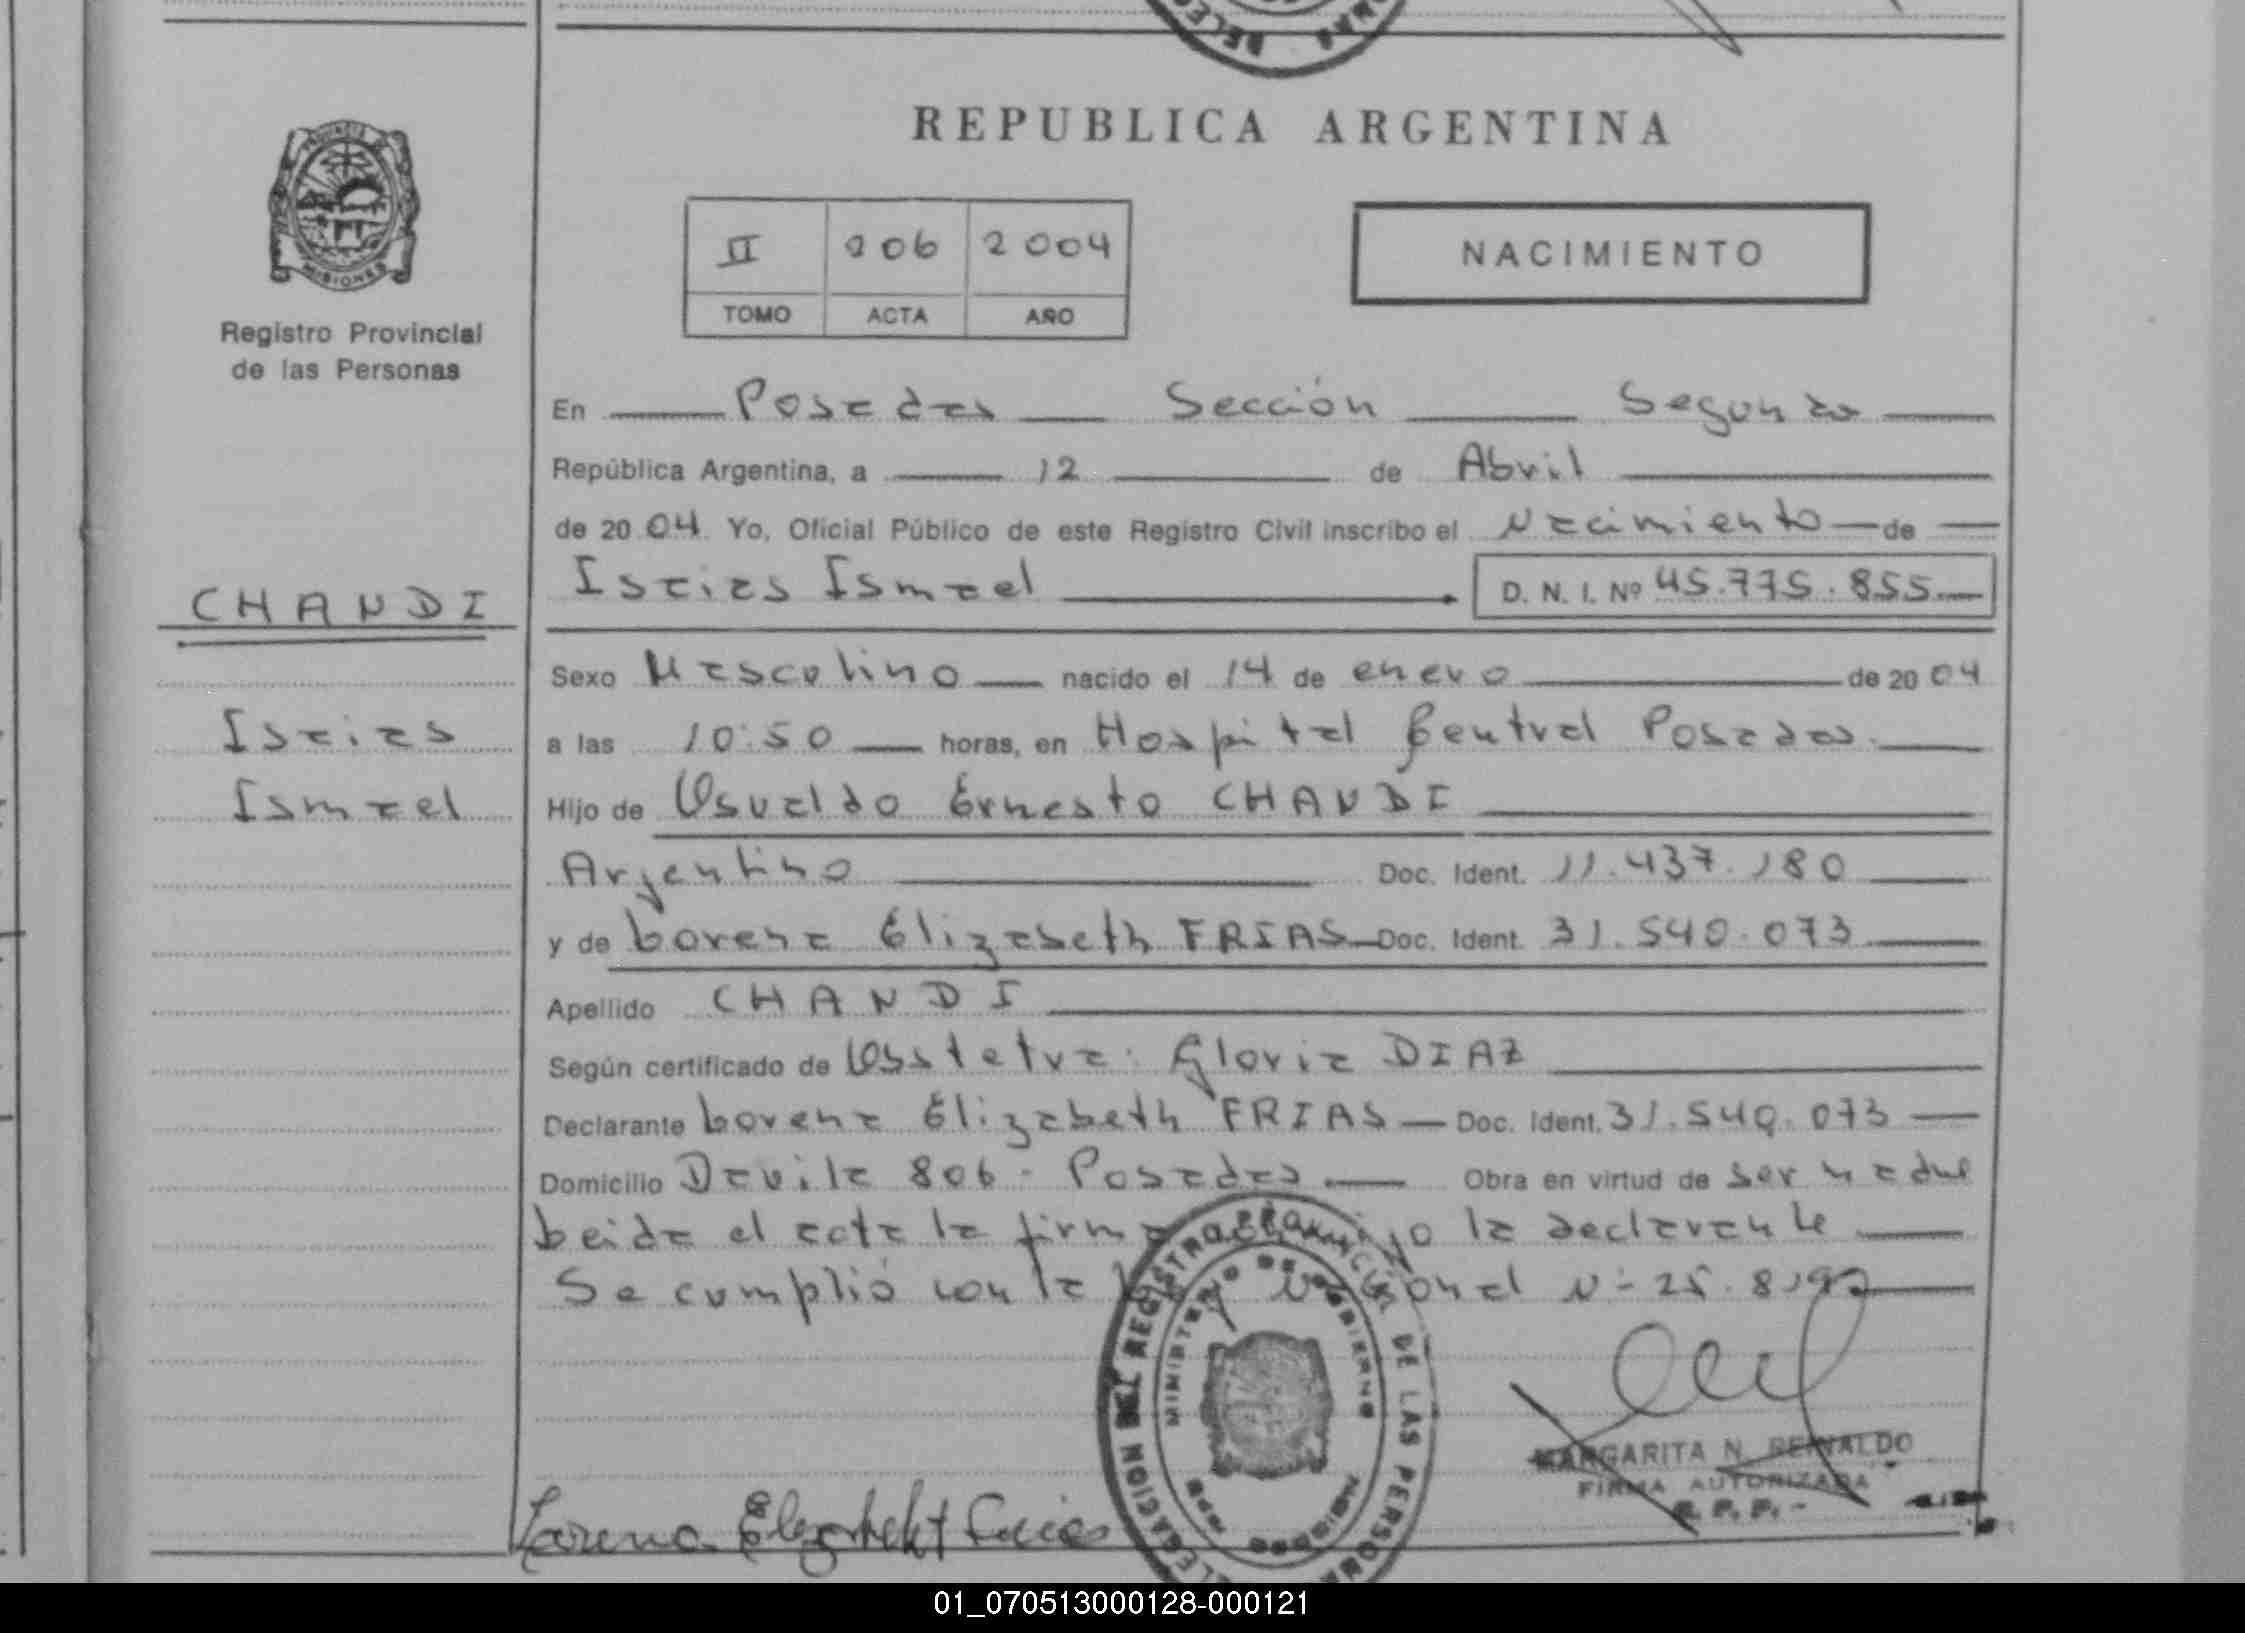 REPUBLICA ARGENTINA
PROVINCIA
MISIONES
Registro Provincial
de las Personas
II 206 2004
TOMO ACTA AÑO
NACIMIENTO
En Posadas Sección Segunda
República Argentina, a 12 de Abril
de 2004 Yo, Oficial Público de este Registro Civil inscribo el Nacimiento de
CHANDI
Isaias Ismael D. N. I. Nº 45.775.855
Sexo Masculino nacido el 14 de enero de 2004
Isaias
a las 10:50 horas, en Hospital Central Posadas
Ismael
Hijo de Osvaldo Ernesto CHANDI
Argentino Doc. Ident. 11.437.180
y de Lorena Elizabeth FRIAS Doc. Ident. 31.540.073
Apellido CHANDI
Según certificado de Obstetra: Gloria DIAZ
Declarante Lorena Elizabeth FRIAS Doc. Ident. 31.540.073
Domicilio Davila 806 - Posadas Obra en virtud de ser madre
Leida el acta la firma la declarante
Se cumplió con la Ley Nacional Nº 25.819
DELEGACION DEL REGISTRO PROVINCIAL DE LAS PERSONAS
MINISTERIO DE GOBIERNO
MARGARITA N. REINALDO
FIRMA AUTORIZADA
R. P. P.
Lorena Elizabeht Frias
01_070513000128-000121